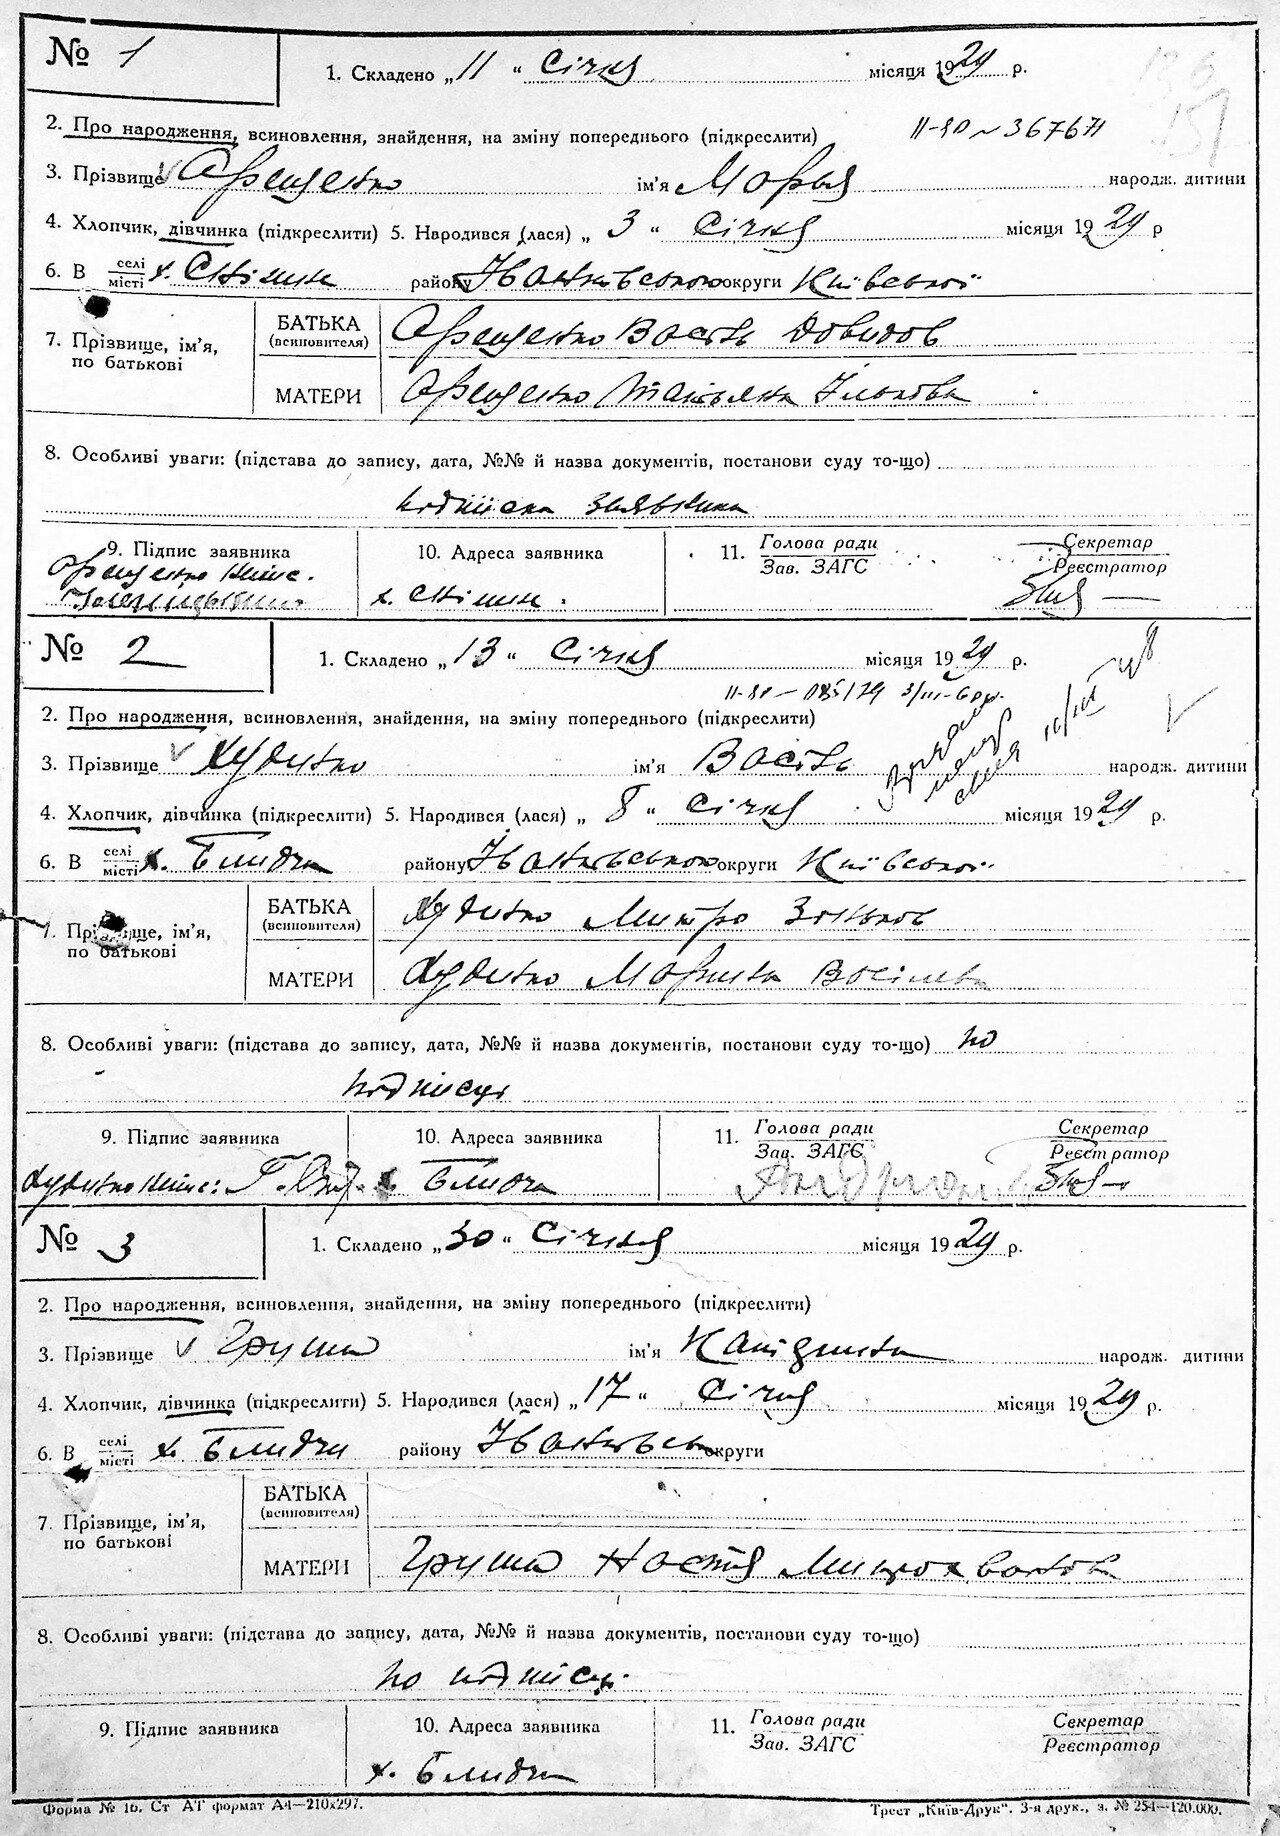 № 1
1. Складено „11“ Січня місяця 1929 р.
2. Про народження, всиновлення, знайдення, на зміну попереднього (підкреслити)
3. Прізвище ім'я Марья народж. дитини
4. Хлопчик, дівчинка (підкреслити) 5. Народився (лася) „3“ Січня місяця 1929 р
6. В селі/місті х. району Іванківського округи Київської
7. Прізвище, ім'я, по батькові
БАТЬКА (всиновителя) Довидов
МАТЕРИ Татьяна Ількова
8. Особливі уваги: (підстава до запису, дата, №№ й назва документів, постанови суду то-що)
подписка заявника
9. Підпис заявника
10. Адреса заявника
11. Голова ради / Зав. ЗАГС
Секретар / Реєстратор
№ 2
1. Складено „13“ Січня місяця 1929 р.
2. Про народження, всиновлення, знайдення, на зміну попереднього (підкреслити)
3. Прізвище Худенко ім'я Василь народж. дитини
4. Хлопчик, дівчинка (підкреслити) 5. Народився (лася) „8“ січня місяця 1929 р.
6. В селі/місті х. Блидча району Іванківського округи Київської
7. Прізвище, ім'я, по батькові
БАТЬКА (всиновителя) Худенко Митро Зіньков
МАТЕРИ Худенко Марина
8. Особливі уваги: (підстава до запису, дата, №№ й назва документів, постанови суду то-що) по
подписці
9. Підпис заявника
10. Адреса заявника
11. Голова ради / Зав. ЗАГС
Секретар / Реєстратор
х. Блидча
№ 3
1. Складено „30“ Січня місяця 1929 р.
2. Про народження, всиновлення, знайдення, на зміну попереднього (підкреслити)
3. Прізвище Груша ім'я народж. дитини
4. Хлопчик, дівчинка (підкреслити) 5. Народився (лася) „17“ Січня місяця 1929 р.
6. В селі/місті х. Блидчи району Іванківськ округи
7. Прізвище, ім'я, по батькові
БАТЬКА (всиновителя)
МАТЕРИ Груша Настя
8. Особливі уваги: (підстава до запису, дата, №№ й назва документів, постанови суду то-що)
по подписці
9. Підпис заявника
10. Адреса заявника
11. Голова ради / Зав. ЗАГС
Секретар / Реєстратор
х. Блидча
Форма № 1б. Ст АТ формат А4—210x297.
Трест „Київ-Друк“. 3-я друк., з. № 254—120.000.